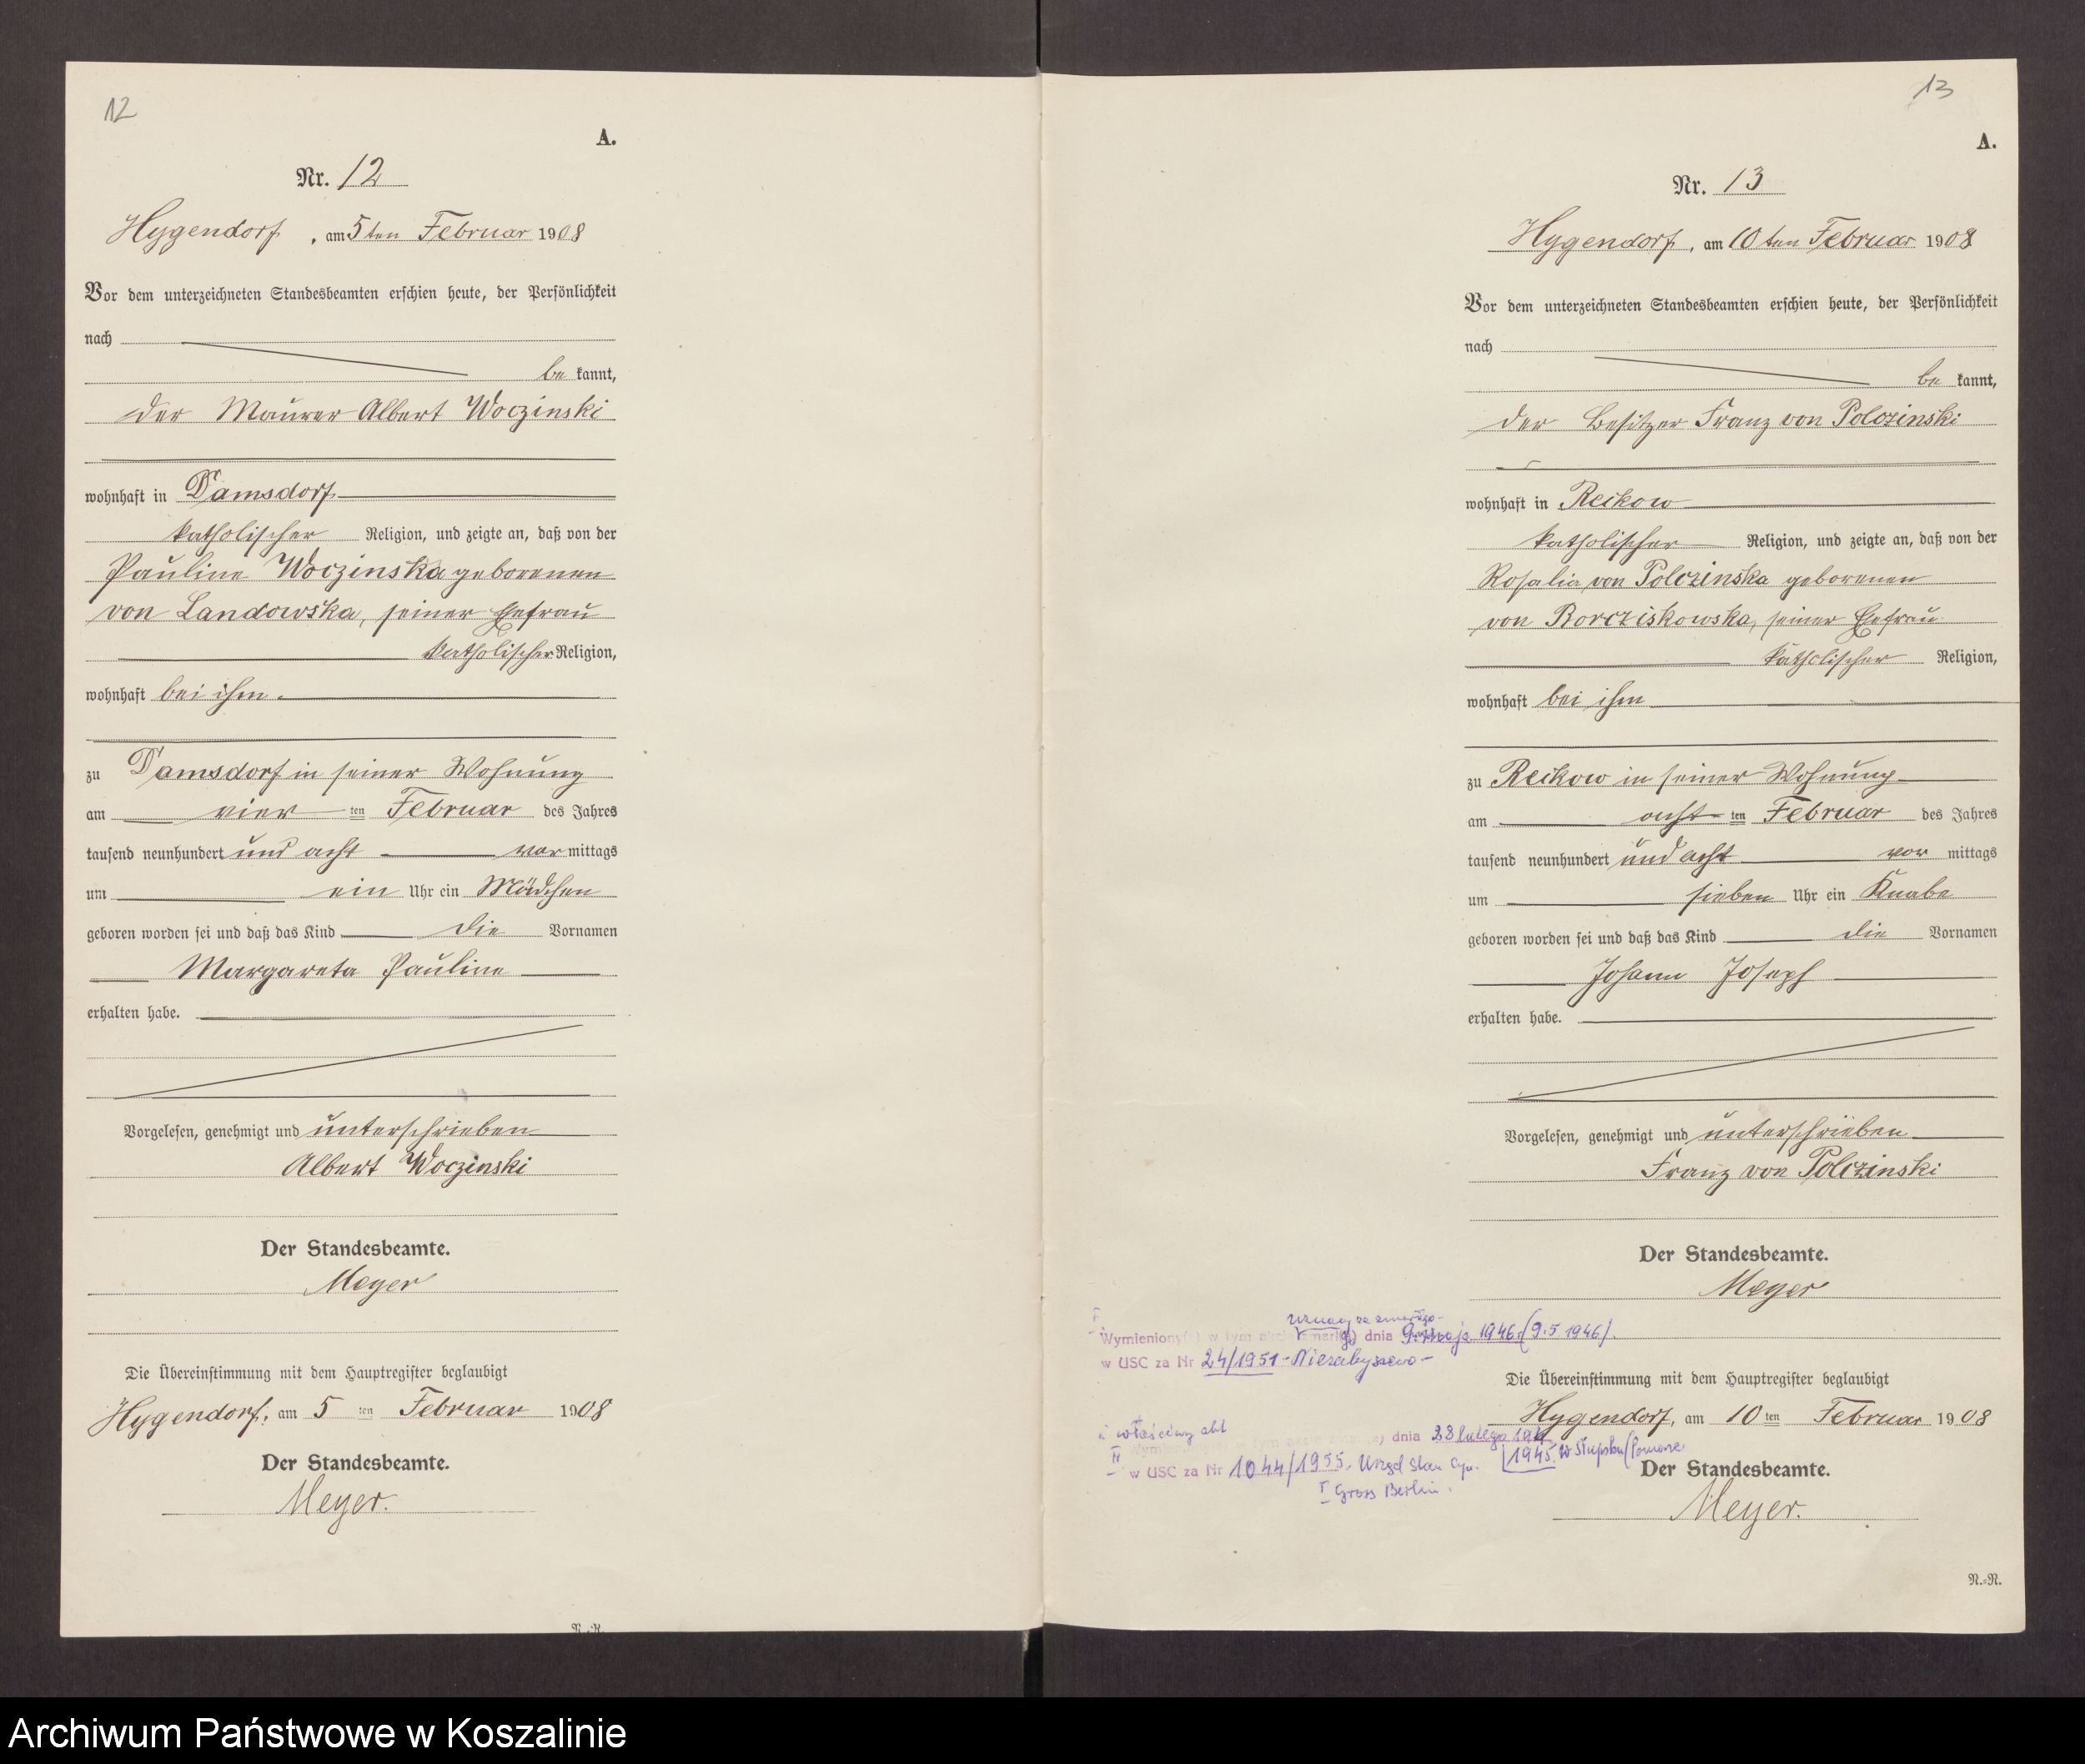 12
A.
Nr. 12
Hygendorf, am 5ten Februar 1908
Vor dem unterzeichneten Standesbeamten erschien heute, der Persönlichkeit
nach
be kannt,
der Maurer Albert Woczinski
wohnhaft in Damsdorf
katholischer Religion, und zeigte an, daß von der
Pauline Woczinska geborenen
von Landowska, seiner Ehefrau
katholischer Religion,
wohnhaft bei ihm.
zu Damsdorf in seiner Wohnung
am vier ten Februar des Jahres
tausend neunhundert und acht vor mittags
um ein Uhr ein Mädchen
geboren worden sei und daß das Kind die Vornamen
Margareta Pauline
erhalten habe.
Vorgelesen, genehmigt und unterschrieben
Albert Woczinski
Der Standesbeamte.
Meyer
Die Übereinstimmung mit dem Hauptregister beglaubigt
Hygendorf, am 5 ten Februar 1908
Der Standesbeamte.
Meyer.
13
A.
Nr. 13
Hygendorf, am 10ten Februar 1908
Vor dem unterzeichneten Standesbeamten erschien heute, der Persönlichkeit
nach
be kannt,
der Besitzer Franz von Polczinski
wohnhaft in Reckow
katholischer Religion, und zeigte an, daß von der
Rosalia von Polczinska geborenen
von Borcziskowska, seiner Ehefrau
katholischer Religion,
wohnhaft bei ihm
zu Reckow in seiner Wohnung
am acht ten Februar des Jahres
tausend neunhundert und acht vor mittags
um sieben Uhr ein Knabe
geboren worden sei und daß das Kind die Vornamen
Johann Joseph
erhalten habe.
Vorgelesen, genehmigt und unterschrieben
Franz von Polczinski
Der Standesbeamte.
Meyer
Die Übereinstimmung mit dem Hauptregister beglaubigt
Hygendorf, am 10 ten Februar 1908
Der Standesbeamte.
Meyer.
R.-R.
uznany za
Wymieniony w tym akcie zmarł dnia 9. maja 1946. (9.5 1946).
w USC za Nr 24/1951 - Niezabyszewo -
właściwy akt
II dnia 28 lutego
1945. w Słupsku
w USC za Nr 1044/1955. Urząd Stan Cyw.
I Gross Berlin.
Archiwum Państwowe w Koszalinie